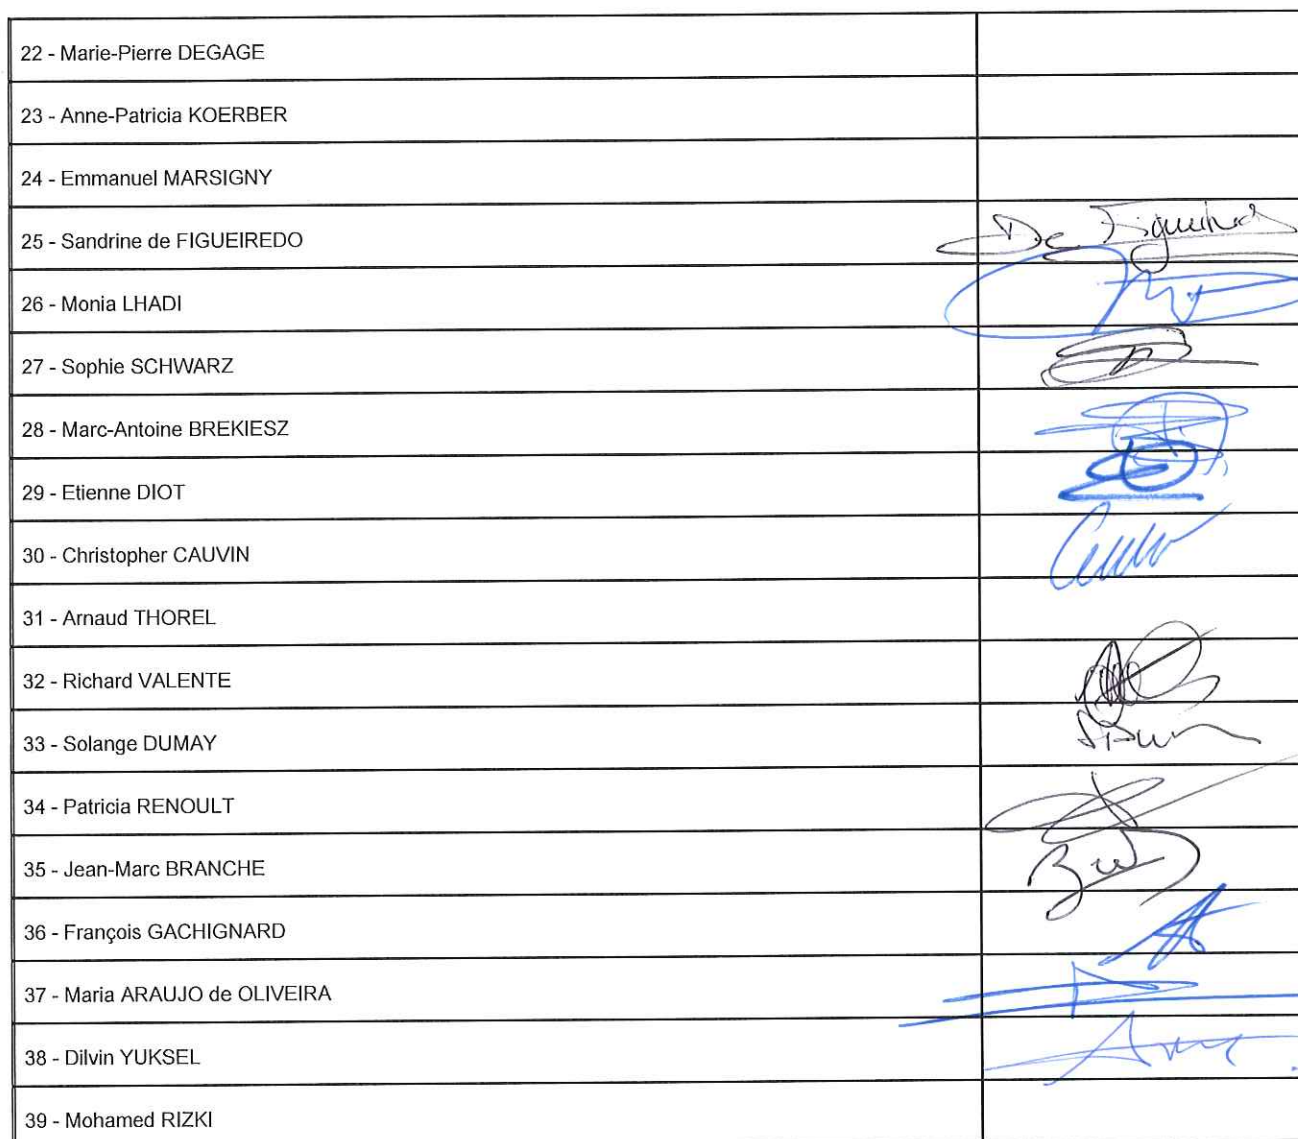 22 - Marie-Pierre DEGAGE
23 - Anne-Patricia KOERBER
24 - Emmanuel MARSIGNY
25 - Sandrine de FIGUEIREDO De Figueiredo
26 - Monia LHADI
27 - Sophie SCHWARZ
28 - Marc-Antoine BREKIESZ
29 - Etienne DIOT
30 - Christopher CAUVIN
31 - Arnaud THOREL
32 - Richard VALENTE
33 - Solange DUMAY
34 - Patricia RENOULT
35 - Jean-Marc BRANCHE
36 - François GACHIGNARD
37 - Maria ARAUJO de OLIVEIRA
38 - Dilvin YUKSEL
39 - Mohamed RIZKI